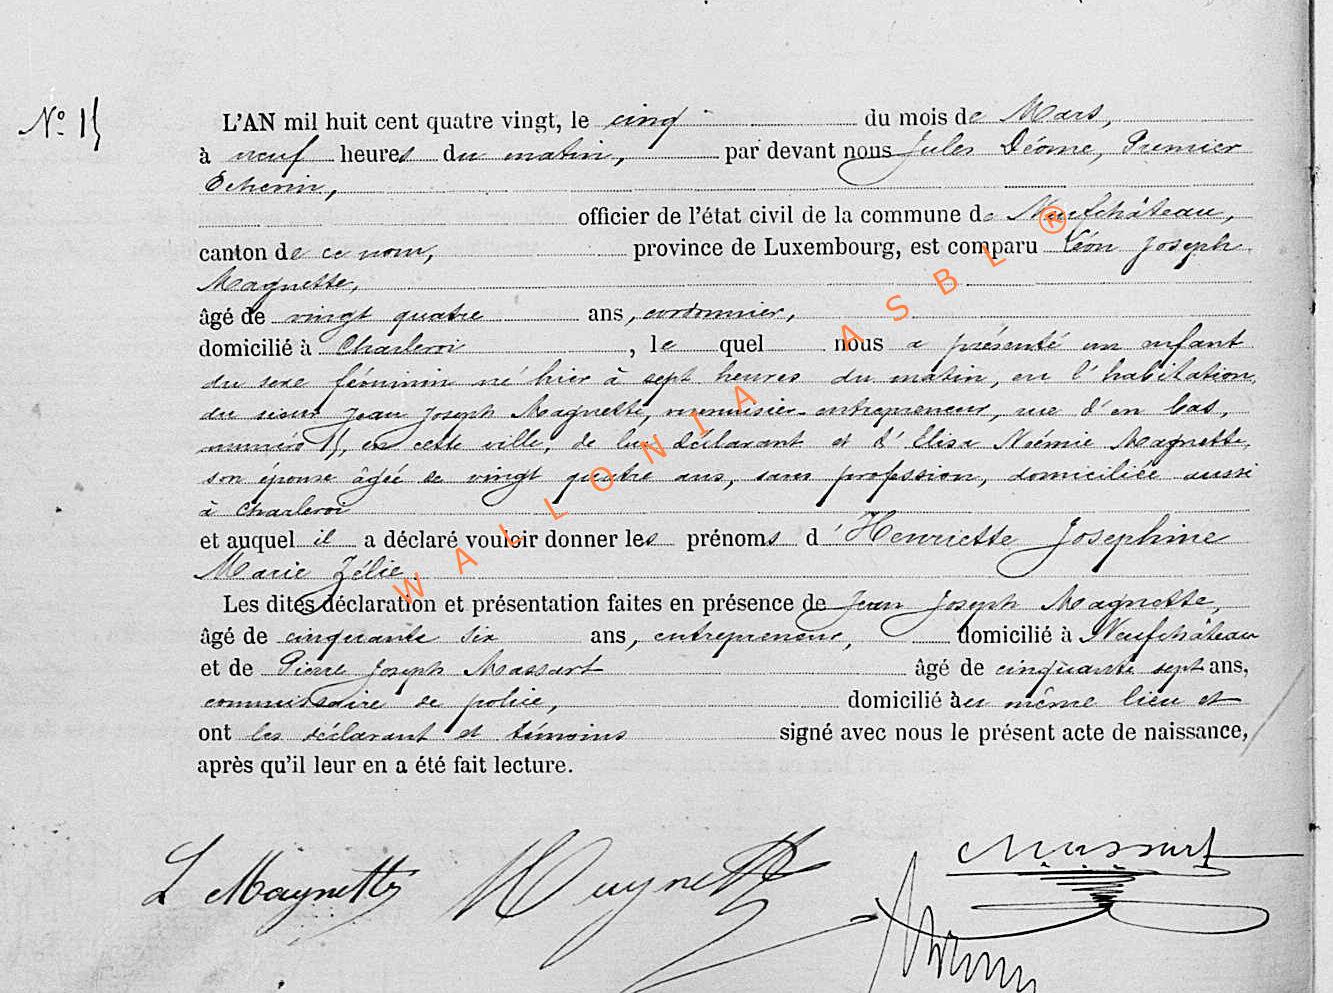 N° 15
L'AN mil huit cent quatre vingt, le cinq du mois de Mars,
à neuf heures du matin, par devant nous Jules Déome, Premier
Echevin,
officier de l'état civil de la commune de Neufchâteau,
canton de ce nom, province de Luxembourg, est comparu Léon Joseph
Magnette,
âgé de vingt quatre ans, cordonnier,
domicilié à Charleroi, le quel nous a présenté un enfant
du sexe féminin né hier à sept heures du matin, en l'habitation
du sieur Jean Joseph Magnette, menuisier-entrepreneur, rue d'en bas,
numéro 15, en cette ville, de lui déclarant et d'Elisa Noémie Magnette,
son épouse âgée de vingt quatre ans, sans profession, domiciliée aussi
à Charleroi
et auquel il a déclaré vouloir donner les prénoms d'Henriette Joséphine
Marie Zélie.
Les dites déclaration et présentation faites en présence de Jean Joseph Magnette,
âgé de cinquante six ans, entrepreneur, domicilié à Neufchâteau
et de Pierre Joseph Massart âgé de cinquante sept ans,
commissaire de police, domicilié au même lieu et
ont les déclarant et témoins signé avec nous le présent acte de naissance,
après qu'il leur en a été fait lecture.
L Magnette Magnette Massart
WALLONIA ASBL ®